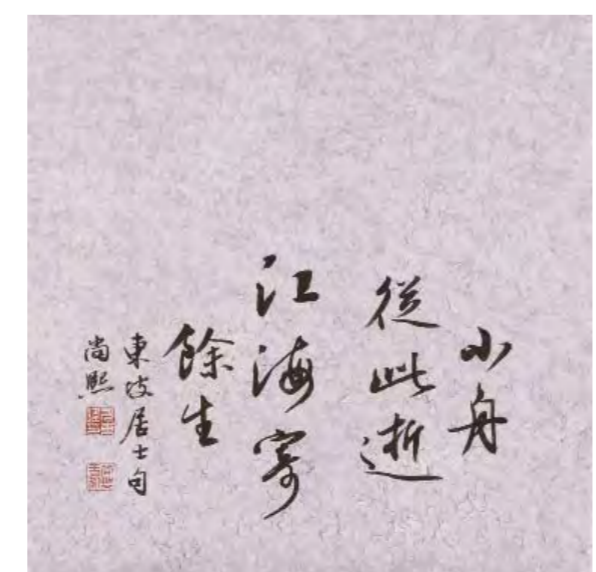 小舟
從此逝
江海寄
餘生
東坡居士句
尚熙